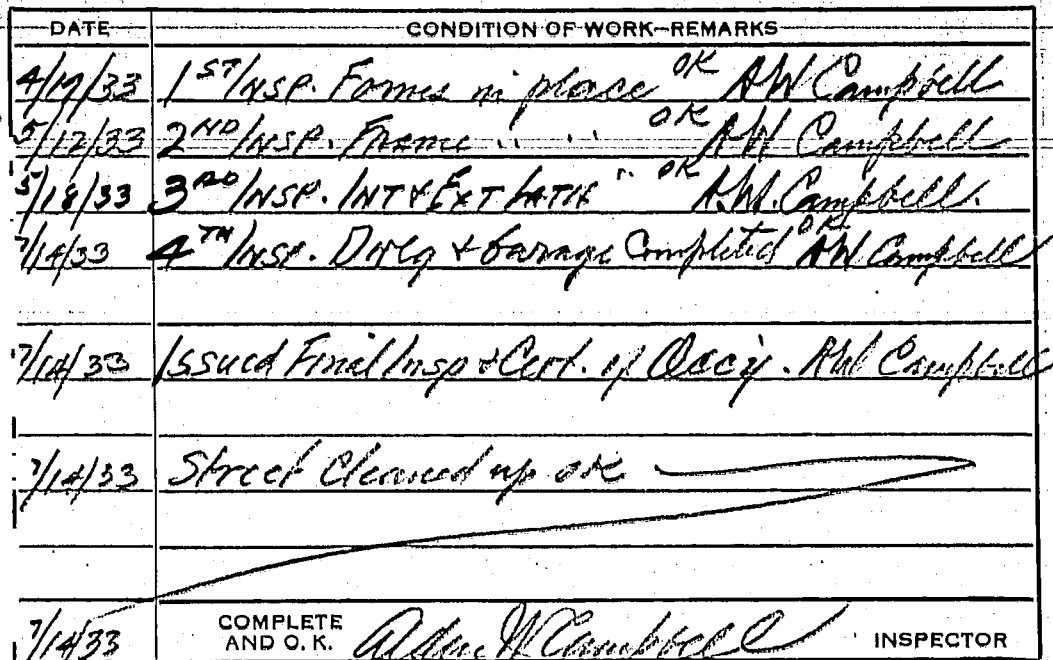 DATE CONDITION OF WORK—REMARKS
4/17/33 1ST INSP. Forms in place OK AW Campbell
5/12/33 2ND INSP. Frame " " OK AW Campbell
5/18/33 3RD INSP. INT & EXT LATH " OK A.W. Campbell.
7/14/33 4TH INSP. Dwlg & Garage Completed OK AW Campbell
7/14/33 Issued Final Insp & Cert. of Occ'y. AW Campbell
7/14/33 Street Cleaned up OK
7/14/33 COMPLETE AND O.K. W Campbell INSPECTOR